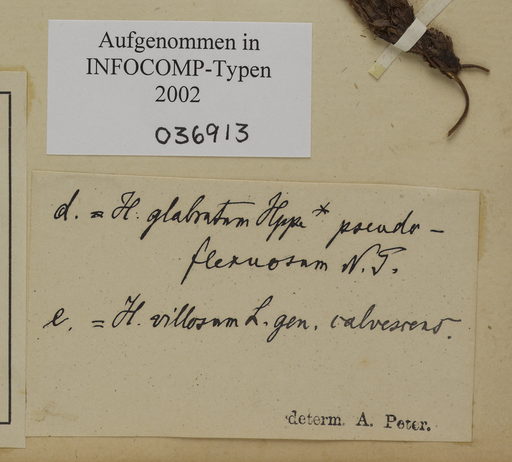 Aufgenommen in
INFOCOMP-Typen
2002
036913
d. = H. glabratum Hppe * pseudo-
flexuosum N. P.
e. = H. villosum L. gen. calvescens.
determ. A. Peter.